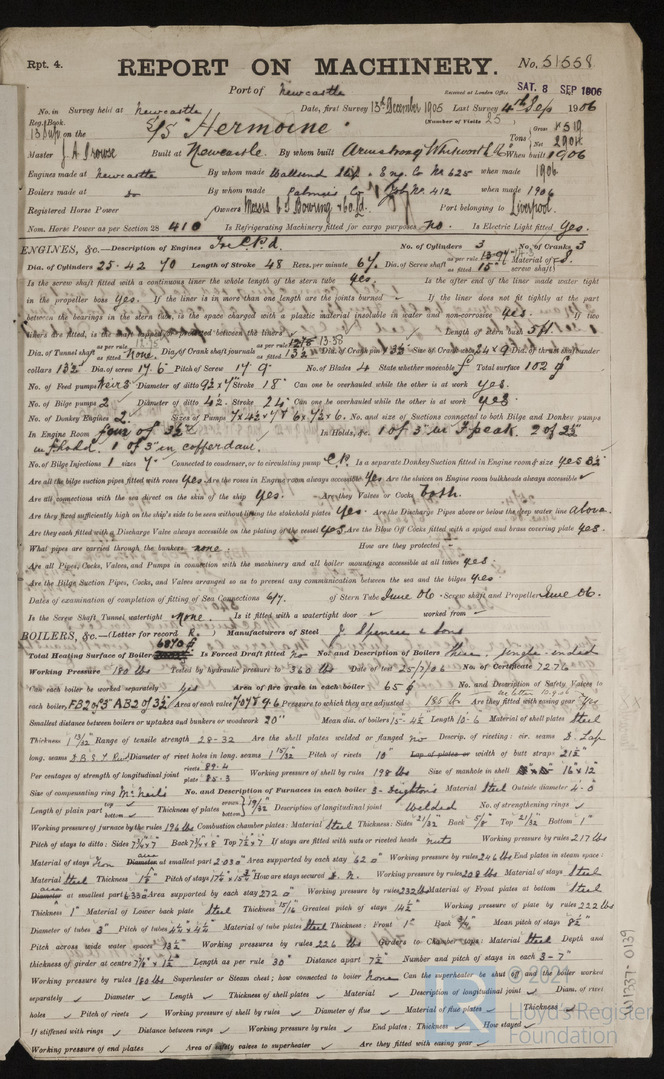 Rpt. 4. REPORT ON MACHINERY. No. 51558
Port of Newcastle Received at London Office SAT. 8 SEP 1906
No. in Survey held at Newcastle Date, first Survey 13th December 1905 Last Survey 4th Sep 1906
Reg. Book. (Number of Visits 25)
on the S/S "Hermoine" Tons Gross Net
Master Built at Newcastle. By whom built Armstrong Whitworth & Co When built 1906
Engines made at Newcastle By whom made Wallsend Slip & Eng. Co No 625 when made 1906
Boilers made at do By whom made Palmers Co No. 412 when made 1906
Registered Horse Power Owners Messrs C T Bowring & Co. Ld. Port belonging to Liverpool.
Nom. Horse Power as per Section 28 410 Is Refrigerating Machinery fitted for cargo purposes no. Is Electric Light fitted Yes.
ENGINES, &c.—Description of Engines No. of Cylinders 3 No. of Cranks 3
Dia. of Cylinders 25-42 70 Length of Stroke 48 Revs. per minute 67. Dia. of Screw shaft as per rule as fitted 15" Material of screw shaft S.
Is the screw shaft fitted with a continuous liner the whole length of the stern tube yes. Is the after end of the liner made water tight
in the propeller boss Yes. If the liner is in more than one length are the joints burned ✓ If the liner does not fit tightly at the part
between the bearings in the stern tube, is the space charged with a plastic material insoluble in water and non-corrosive Yes. If two
liners are fitted, is the between the liners ✓ Length of stern bush 5 ft
Dia. of Tunnel shaft as per rule as fitted None. Dia. of Crank shaft journals as per rule as fitted 13½ Dia. of Crank pin 13½ Size of Crank webs 24 x 9 Dia. of thrust shaft under
collars 13½ Dia. of screw 17.6 Pitch of Screw 17 9 No. of Blades 4 State whether moveable Total surface 102
No. of Feed pumps Weirs Diameter of ditto 9½ x 7" Stroke 18" Can one be overhauled while the other is at work yes.
No. of Bilge pumps 2 Diameter of ditto 4½. Stroke 24" Can one be overhauled while the other is at work yes
No. of Donkey Engines 2. Sizes of Pumps No. and size of Suctions connected to both Bilge and Donkey pumps
In Engine Room four of 3½" In Holds, &c. 1 of 3" in F peak. 2 of 3½"
in F hold. 1 of 3" in cofferdam.
No. of Bilge Injections 1 sizes 7" Connected to condenser, or to circulating pump C.P. Is a separate Donkey Suction fitted in Engine room & size yes 3½"
Are all the bilge suction pipes fitted with roses Yes Are the roses in Engine room always accessible Yes Are the sluices on Engine room bulkheads always accessible ✓
Are all connections with the sea direct on the skin of the ship Yes. Are they Valves or Cocks both.
Are they fixed sufficiently high on the ship's side to be seen without lifting the stokehold plates Yes. Are the Discharge Pipes above or below the deep water line Above
Are they each fitted with a Discharge Valve always accessible on the plating of the vessel yes Are the Blow Off Cocks fitted with a spigot and brass covering plate yes.
What pipes are carried through the bunkers none How are they protected -
Are all Pipes, Cocks, Valves, and Pumps in connection with the machinery and all boiler mountings accessible at all times yes
Are the Bilge Suction Pipes, Cocks, and Valves arranged so as to prevent any communication between the sea and the bilges yes
Dates of examination of completion of fitting of Sea Connections 6/7. of Stern Tube June 06. Screw shaft and Propeller June 06.
Is the Screw Shaft Tunnel watertight None. Is it fitted with a watertight door ✓ worked from ✓
BOILERS, &c.—(Letter for record R.) Manufacturers of Steel J. Spencer & Sons
Total Heating Surface of Boilers 6870 Is Forced Draft fitted No. and Description of Boilers Three Single-ended
Working Pressure 180 lbs Tested by hydraulic pressure to 360 lbs Date of test 25/7/06 No. of Certificate 7276
Can each boiler be worked separately yes Area of fire grate in each boiler 65 No. and Description of Safety Valves to
each boiler Area of each valve Pressure to which they are adjusted 185 lb Are they fitted with easing gear Yes
Smallest distance between boilers or uptakes and bunkers or woodwork 20" Mean dia. of boilers 15-4½ Length 10-6 Material of shell plates Steel
Thickness 1 13/32 Range of tensile strength 28-32 Are the shell plates welded or flanged no Descrip. of riveting: cir. seams D. Lap
long. seams Diameter of rivet holes in long. seams 1 15/32 Pitch of rivets 10" Lap of plates or width of butt straps 21½"
Per centages of strength of longitudinal joint rivets 89.4 plate 85.3 Working pressure of shell by rules 198 lbs Size of manhole in shell 16" x 12"
Size of compensating ring McNeils No. and Description of Furnaces in each boiler 3-Deightons Material Steel Outside diameter 4-0
Length of plain part top ✓ bottom ✓ Thickness of plates crown bottom 19/32 Description of longitudinal joint Welded No. of strengthening rings ✓
Working pressure of furnace by the rules 196 lbs Combustion chamber plates: Material Steel Thickness: Sides 21/32 Back 5/8" Top 21/32 Bottom 1"
Pitch of stays to ditto: Sides 7¾ x 7" Back 7¾ x 8 Top 7½ x 7" If stays are fitted with nuts or riveted heads nuts Working pressure by rules 217 lbs
Material of stays Iron area at smallest part 2.03 Area supported by each stay 62 Working pressure by rules 246 lbs End plates in steam space:
Material Steel Thickness Pitch of stays How are stays secured D.N. Working pressure by rules 208 lbs Material of stays Steel
area at smallest part 6.33 Area supported by each stay 272 Working pressure by rules 232 lbs Material of Front plates at bottom Steel
Thickness 1" Material of Lower back plate Steel Thickness 15/16 Greatest pitch of stays 14½ Working pressure of plate by rules 222 lbs
Diameter of tubes 3" Pitch of tubes 4¼ x 4¼ Material of tube plates Steel Thickness: Front 1" Back ¾" Mean pitch of stays 8½"
Pitch across wide water spaces 13½" Working pressures by rules 226 lbs Girders to Chamber tops: Material Steel Depth and
thickness of girder at centre Length as per rule 30" Distance apart 7½ Number and pitch of stays in each 3-7"
Working pressure by rules 180 lbs Superheater or Steam chest; how connected to boiler None Can the superheater be shut off and the boiler worked
separately ✓ Diameter ✓ Length ✓ Thickness of shell plates ✓ Material ✓ Description of longitudinal joint ✓ Diam. of rivet
holes ✓ Pitch of rivets ✓ Working pressure of shell by rules ✓ Diameter of flue ✓ Material of flue plates ✓ Thickness ✓
If stiffened with rings ✓ Distance between rings ✓ Working pressure by rules ✓ End plates: Thickness ✓ How stayed ✓
Working pressure of end plates ✓ Area of safety valves to superheater ✓ Are they fitted with easing gear ✓
W1337-0139
© 2021
Lloyd's Register
Foundation